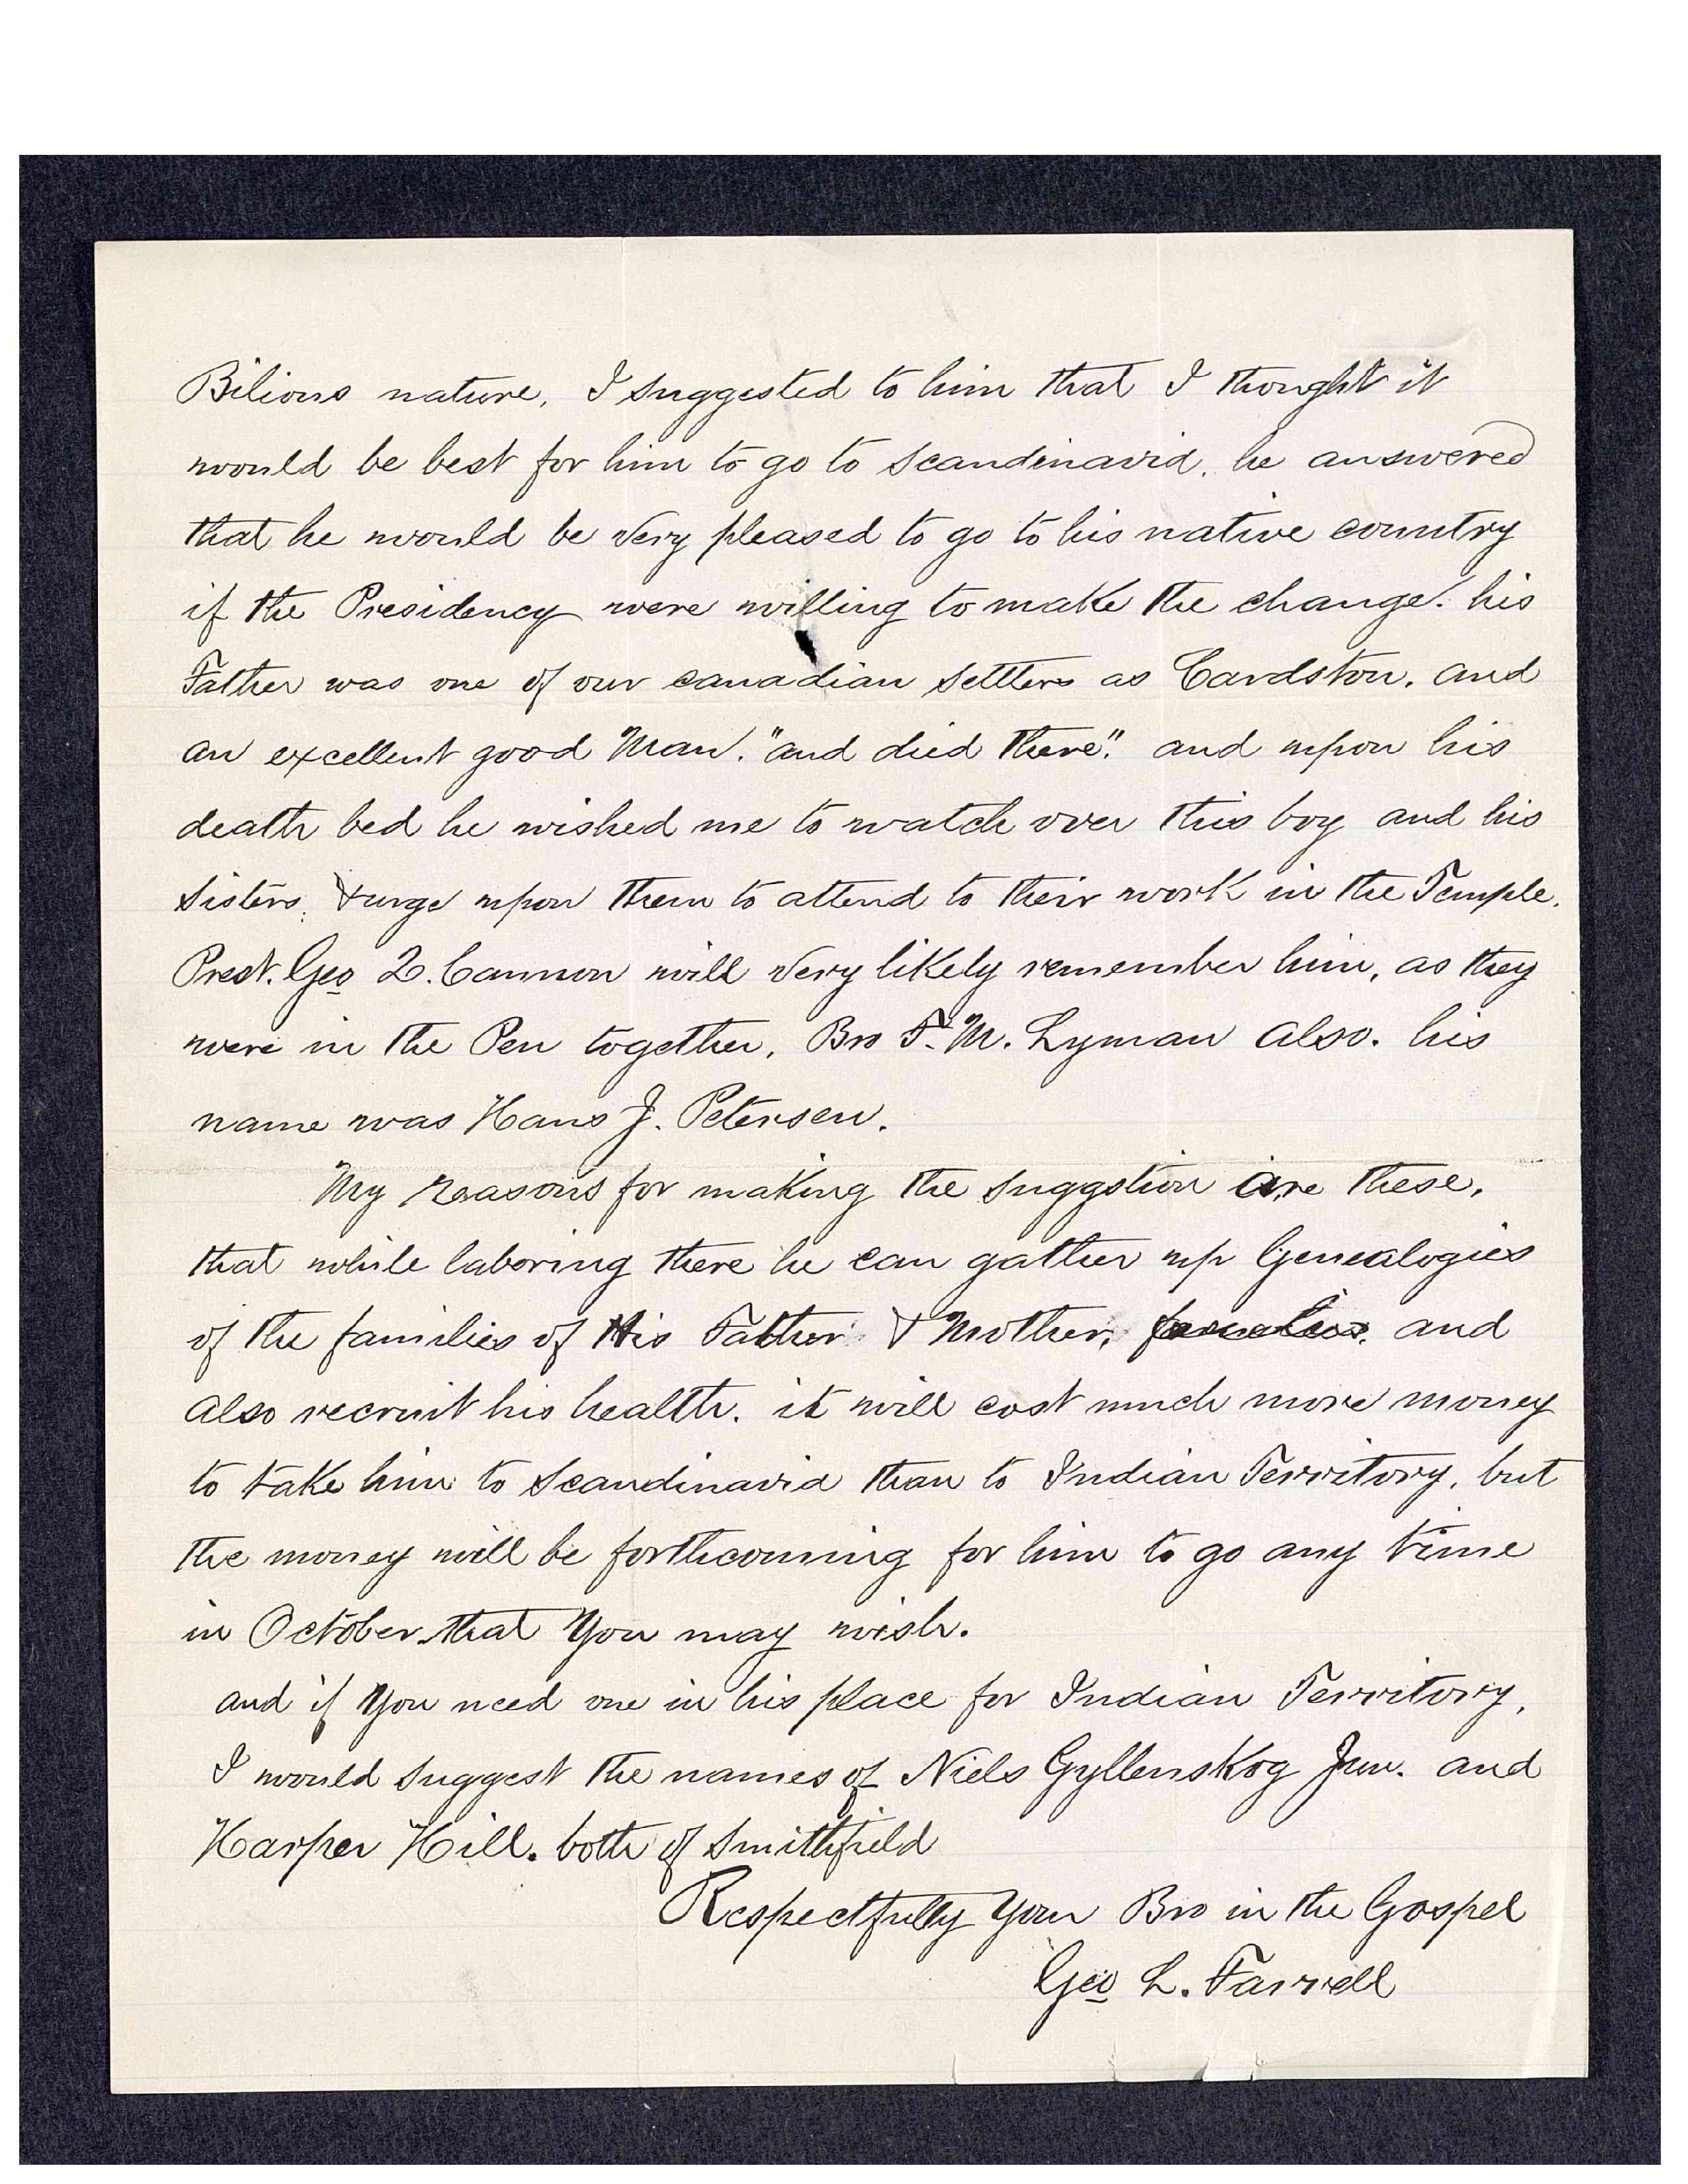 Bilious nature, I suggested to him that I thought it
would be best for him to go to Scandinavia. he answered
that he would be very pleased to go to his native country
if the Presidency were willing to make the change. his
Father was one of our canadian settlers as Cardston. and
an excellent good Man. "and died there". and upon his
death bed he wished me to watch over this boy and his
Sisters, & urge upon them to attend to their work in the Temple.
Prest. Geo Q. Cannon will very likely remember him, as they
were in the Pen together, Bro F. M. Lyman also. his
name was Hans J. Petersen.
My reasons for making the suggstion are these,
that while laboring there he can gather up Genealogies
of the families of His Father & Mother, families, and
also recruit his health. it will cost much more money
to take him to Scandinavia than to Indian Territory, but
the money will be forthcoming for him to go any time
in October that You may wish.
and if You need one in his place for Indian Territory,
I would suggest the names of Niels Gyllenskog Jun. and
Harper Hill. both of Smithfield
Respectfully Your Bro in the Gospel
Geo L. Farrell